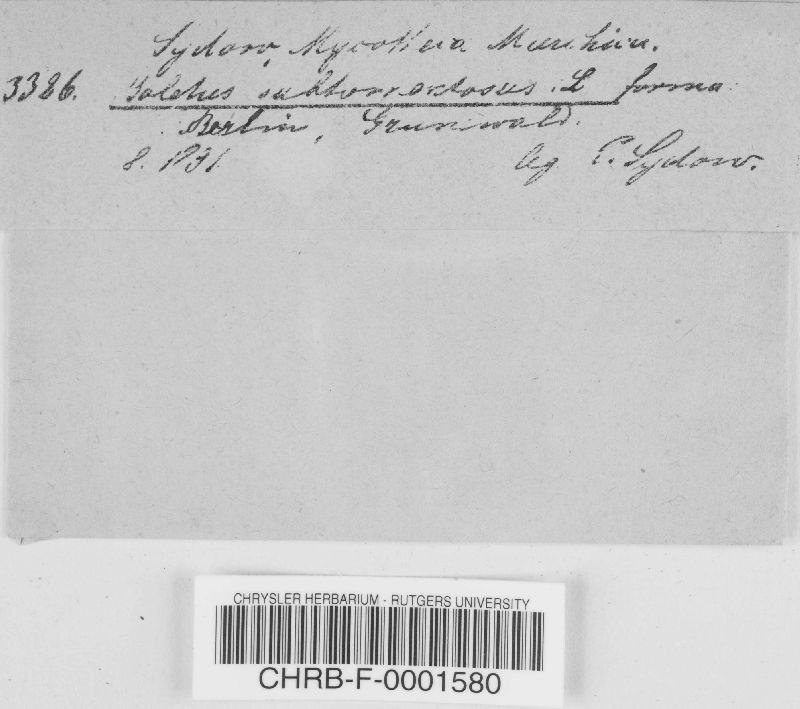 Sydow, Mycotheca Marchica.
3386. Boletus subtomentosus. L forma
Berlin, Grunewald.
8. 1891
leg P. Sydow.
CHRYSLER HERBARIUM - RUTGERS UNIVERSITY
CHRB-F-0001580